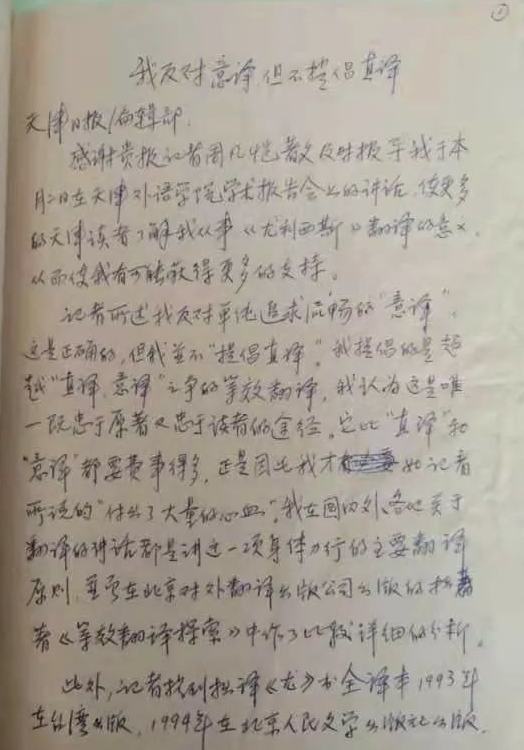 1
我反对意译,但不提倡直译
天津日报/编辑部:
感谢贵报记者周凡恺散文及时报导我于本
月二日在天津外语学院学术报告会上的讲话,使更多
的天津读者了解我从事《尤利西斯》翻译的意义,
从而使我有可能获得更多的支持。
记者所述我反对单纯追求流畅的“意译”,
这是正确的,但我并不“提倡直译”。我提倡的是超
越“直译、意译”之争的等效翻译,我认为这是唯
一既忠于原著又忠于读者的途径。它比“直译”和
“意译”都要费事得多,正是因此我才如记者
所说的“付出了大量的心血”。我在国内外各地关于
翻译的讲话都是讲这一项身体力行的主要翻译
原则,并已在北京对外翻译出版公司出版的拙
著《等效翻译探索》中作了比较详细的分析。
此外,记者提到拙译《尤》书全译本1993年
在台湾出版,1994年在北京人民文学出版社出版,